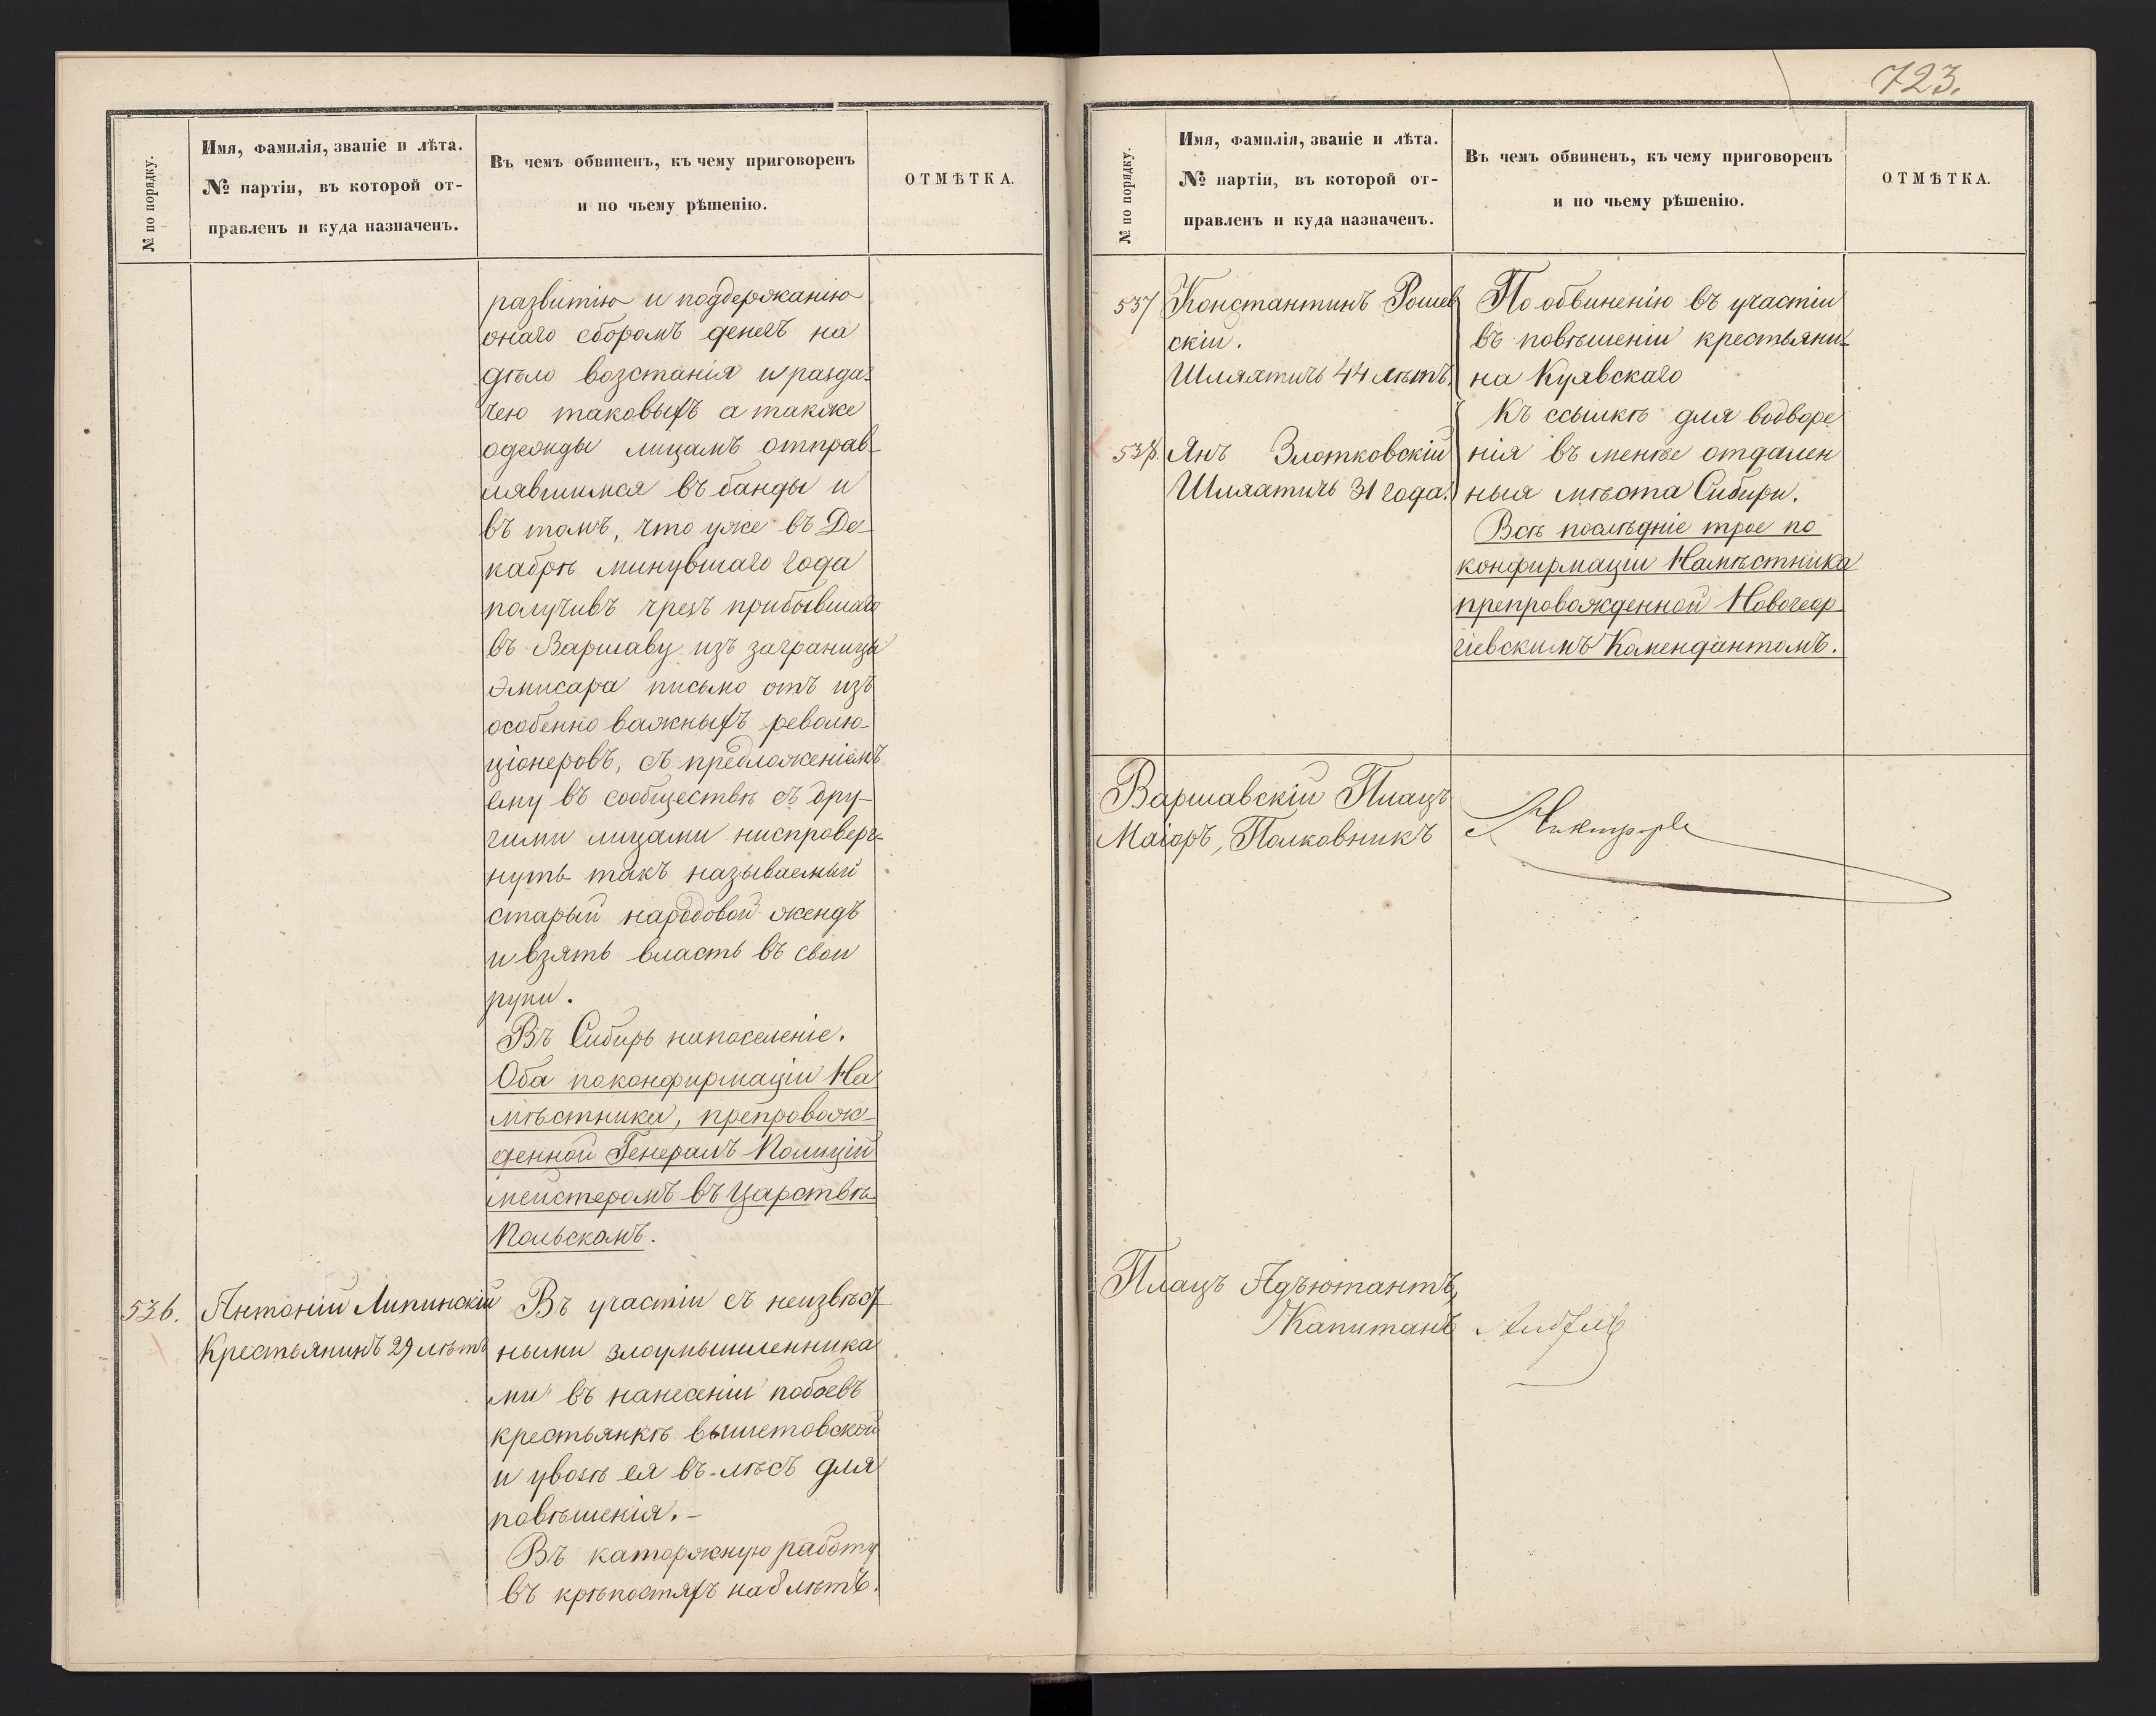 № по порядку.
Имя, фамилія, званіе и лѣта.
№ партіи, въ которой от-
правленъ и куда назначенъ.
Въ чемъ обвиненъ, къ чему приговоренъ
и по чьему рѣшенію.
ОТМѢТКА.
развитію и поддержанію
онаго сборомъ денегъ на
дѣло возстанія и разда-
чею таковыхъ а также
одежды лицамъ отправ-
лявшимся въ банды и
въ томъ, что уже въ Де-
кабрѣ минувшаго года
получивъ чрезъ прибывшаго
въ Варшаву изъ заграницы
эмисара письмо отъ изъ
особенно важныхъ револю-
ціонеровъ, съ предложеніемъ
ему въ сообществѣ съ дру-
гими лицами ниспроверг-
нуть такъ называемый
старый народовой жендъ
и взять власть въ свои
руки.
Въ Сибирь напоселеніе.
Оба поконфирмаціи На
мѣстника, препровож-
денной Генералъ Полицій
мейстеромъ въ Царствѣ
Польскомъ.
536. Антоній Липинскій
Крестьянинъ 29 лѣтъ
Въ участіи съ неизвѣст
ными злоумышленника
ми въ нанесеніи побоевъ
крестьянкѣ Вышетовской
и увозѣ ея въ лѣсъ для
повѣшенія. –
Въ каторжную работу
въ крѣпостяхъ на 8 лѣтъ.
723.
№ по порядку.
Имя, фамилія, званіе и лѣта.
№ партіи, въ которой от-
правленъ и куда назначенъ.
Въ чемъ обвиненъ, къ чему приговоренъ
и по чьему рѣшенію.
ОТМѢТКА.
537 Константинъ Рошев
скій.
Шляхтичь 44 лѣтъ.
538. Янъ Злотковскій
Шляхтичь 31 года.
По обвиненію въ участіи
въ повѣшеніи крестьяни-
на Куявскаго
Къ ссылкѣ для водворе
нія въ менѣе отдален
ныя мѣста Сибири.
Всѣ послѣдніе трое по
конфирмаціи Намѣстника
препровожденной Новогеор
гіевскимъ Комендантомъ.
Варшавскій Плацъ
Маіоръ, Полковникъ
Плацъ Адъютантъ,
Капитанъ